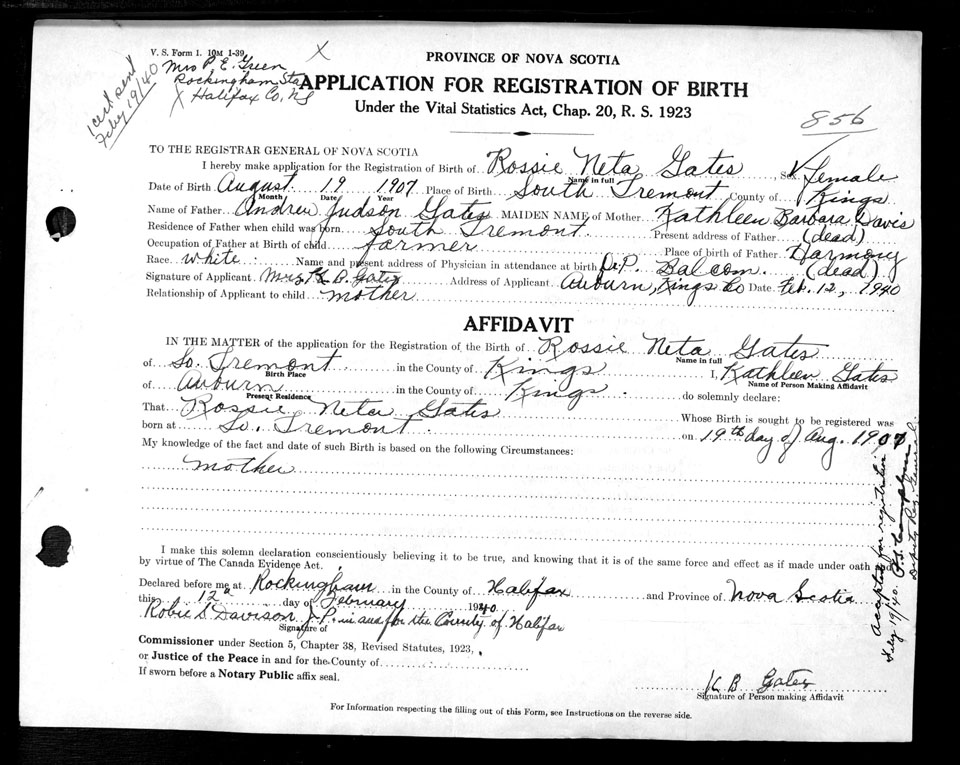 V. S. Form 1. 10M 1-39
Mrs P. E. Green
Rockingham Sta
Halifax Co, NS
1 cert sent
Feby 19/40
PROVINCE OF NOVA SCOTIA
APPLICATION FOR REGISTRATION OF BIRTH
Under the Vital Statistics Act, Chap. 20, R. S. 1923
856
TO THE REGISTRAR GENERAL OF NOVA SCOTIA
I hereby make application for the Registration of Birth of Rossie Neta Gates Sex female
Name in full
Date of Birth August 19 1907 Place of Birth South Tremont County of Kings
Month Date Year
Name of Father Andrew Judson Gates MAIDEN NAME of Mother Kathleen Barbara Davis
Residence of Father when child was born South Tremont Present address of Father (dead)
Occupation of Father at Birth of child farmer Place of birth of Father Harmony
Race white Name and present address of Physician in attendance at birth P. Balcom. (dead)
Signature of Applicant Mrs. K B. Gates Address of Applicant Auburn, Kings Co Date Feb. 12, 1940
Relationship of Applicant to child mother
AFFIDAVIT
IN THE MATTER of the application for the Registration of the Birth of Rossie Neta Gates
Name in full
of So. Tremont in the County of Kings I, Kathleen Gates
Birth Place Name of Person Making Affidavit
of Auburn in the County of Kings do solemnly declare:
Present Residence
That Rossie Neta Gates Whose Birth is sought to be registered was
born at So. Tremont on 19th day of Aug. 1907
My knowledge of the fact and date of such Birth is based on the following Circumstances:
mother
I make this solemn declaration conscientiously believing it to be true, and knowing that it is of the same force and effect as if made under oath and
by virtue of The Canada Evidence Act.
Declared before me at Rockingham in the County of Halifax and Province of Nova Scotia
this 12 day of February 1940
Robie S Davison J.P. in and for the County of Halifax
Signature of
Commissioner under Section 5, Chapter 38, Revised Statutes, 1923,
or Justice of the Peace in and for the County of
If sworn before a Notary Public affix seal.
K B Gates
Signature of Person making Affidavit
For Information respecting the filling out of this Form, see Instructions on the reverse side.
Accepted for registration
Feby 19/40.
Deputy Reg. General.